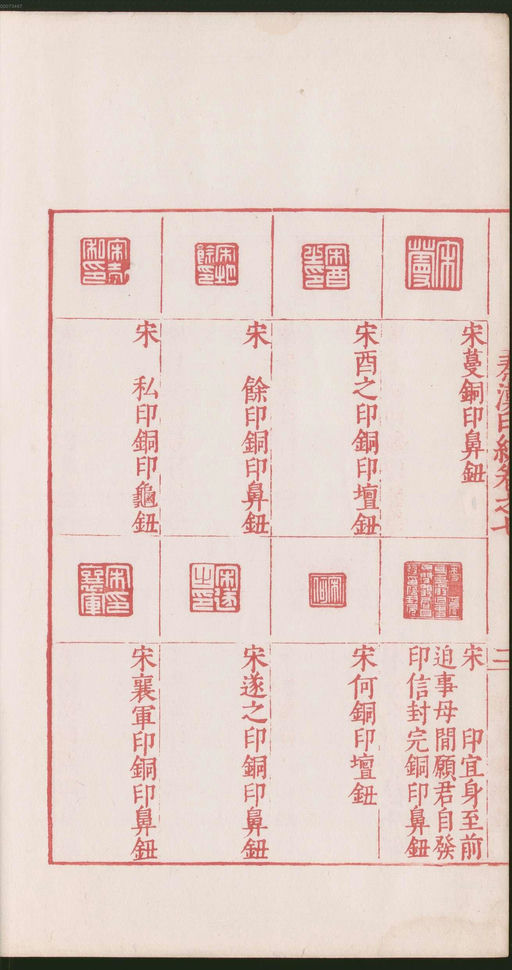 00073447
秦漢印統卷之七
二
宋蔓銅印鼻鈕
宋酉之印銅印壇鈕
宋　餘印銅印鼻鈕
宋　私印銅印龜鈕
宋　印宜身至前
迫事毋閒願君自發
印信封完銅印鼻鈕
宋何銅印壇鈕
宋遂之印銅印鼻鈕
宋襄軍印銅印鼻鈕